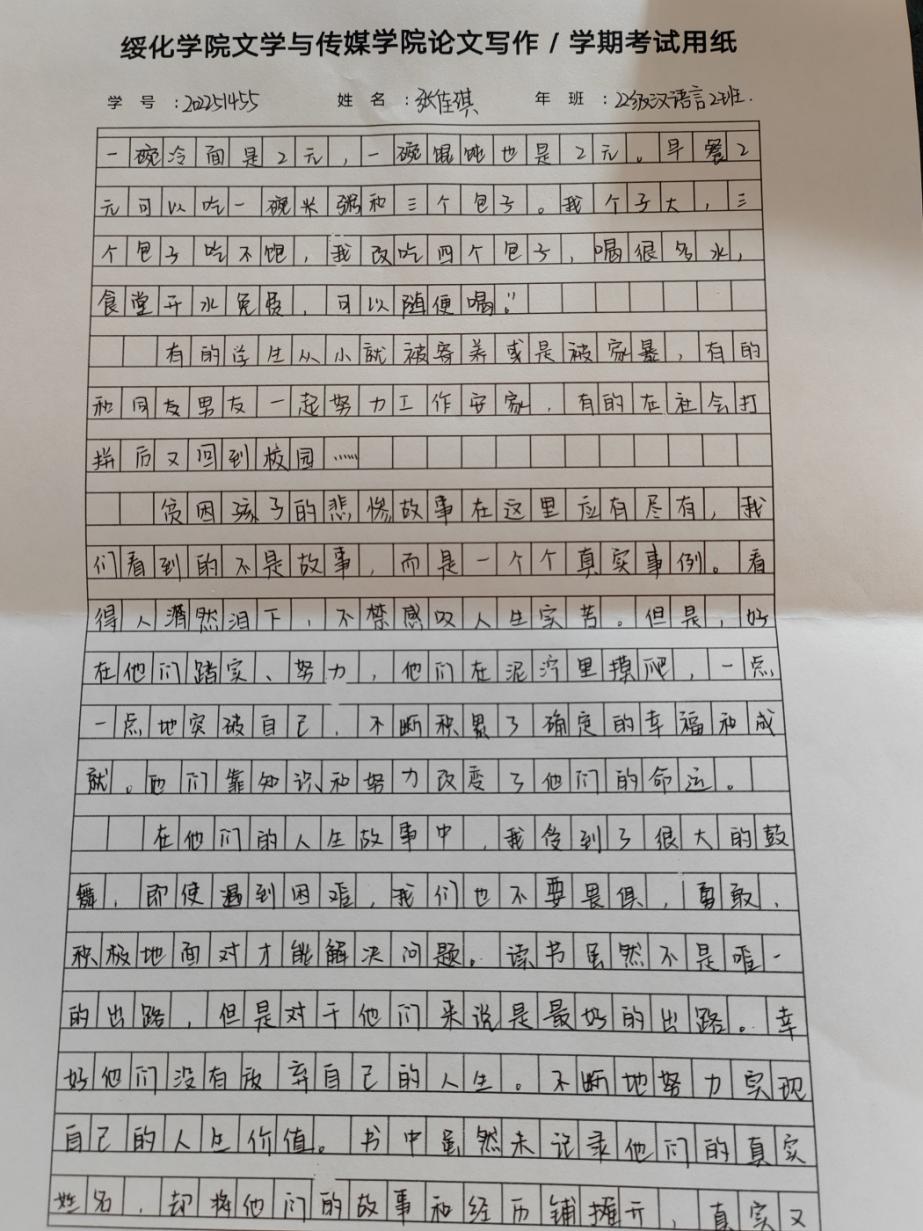 绥化学院文学与传媒学院论文写作 / 学期考试用纸
学 号 :20251455 姓 名 :张佳琪 年 班 :22级汉语言2班.
一碗冷面是2元,一碗馄饨也是2元。早餐2
元可以吃一碗米粥和三个包子。我个子大,三
个包子吃不饱,我改吃四个包子,喝很多水,
食堂开水免费,可以随便喝。”
有的学生从小就被寄养或是被家暴,有的
和同友男友一起努力工作安家,有的在社会打
拼后又回到校园……
贫困孩子的悲惨故事在这里应有尽有,我
们看到的不是故事,而是一个个真实事例。看
得人潸然泪下,不禁感叹人生实苦。但是,好
在他们踏实、努力,他们在泥泞里摸爬,一点
一点地突破自己,不断积累了确定的幸福和成
就。他们靠知识和努力改变了他们的命运。
在他们的人生故事中,我受到了很大的鼓
舞,即使遇到困难,我们也不要畏惧,勇敢、
积极地面对才能解决问题。读书虽然不是唯一
的出路,但是对于他们来说是最好的出路。幸
好他们没有放弃自己的人生。不断地努力实现
自己的人生价值。书中虽然未记录他们的真实
姓名,却将他们的故事和经历铺摊开,真实又